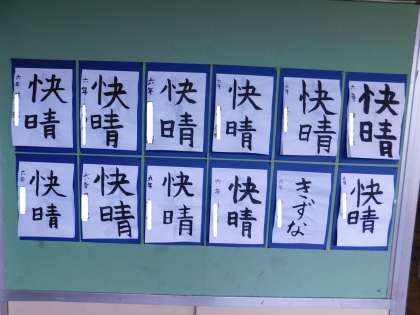 快晴
六年
快晴
六年
快晴
六年
快晴
六年
快晴
六年
快晴
六年
快晴
六年
快晴
六年
快晴
六年
快晴
六年
きずな
六年
快晴
六年